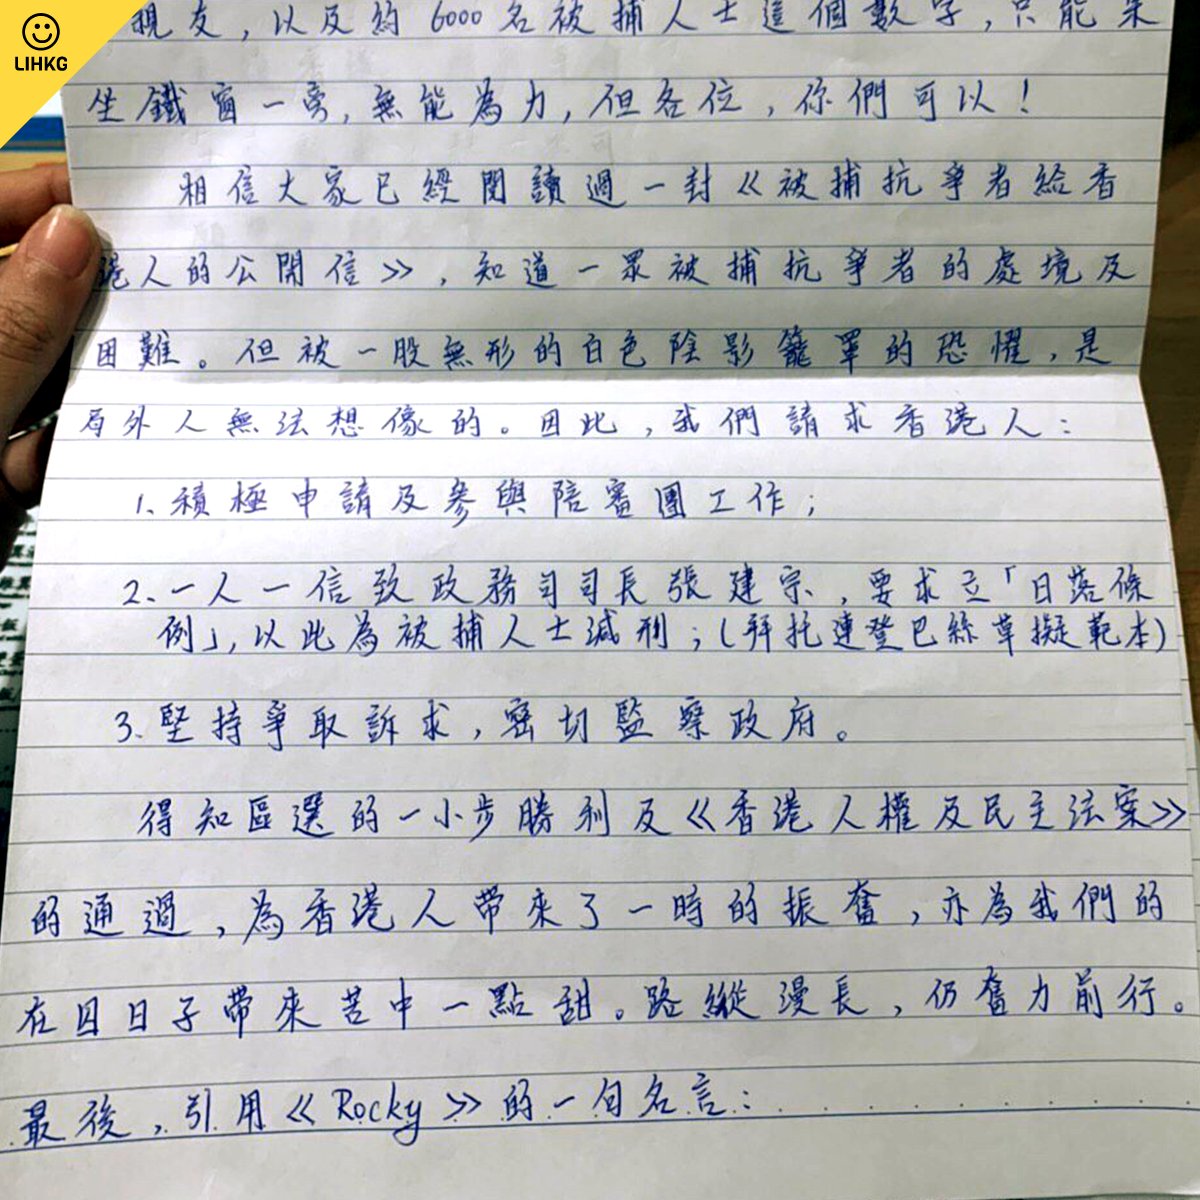 LIHKG
親友，以及約6000名被捕人士這個數字，只能呆
坐鐵窗一旁，無能為力，但各位，你們可以！
相信大家已經閱讀過一封《被捕抗爭者給香
港人的公開信》，知道一眾被捕抗爭者的處境及
困難。但被一股無形的白色陰影籠罩的恐懼，是
局外人無法想像的。因此，我們請求香港人：
1. 積極申請及參與陪審團工作；
2. 一人一信致政務司司長張建宗，要求立「日落條
例」，以此為被捕人士減刑；（拜托連登巴絲草擬範本）
3. 堅持爭取訴求，密切監察政府。
得知區選的一小步勝利及《香港人權及民主法案》
的通過，為香港人帶來了一時的振奮，亦為我們的
在囚日子帶來苦中一點甜。路縱漫長，仍奮力前行。
最後，引用《Rocky》的一句名言：